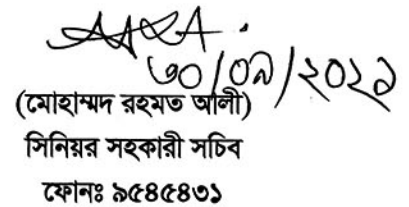 ৩০/০৯/২০২১
(মোহাম্মদ রহমত আলী)
সিনিয়র সহকারী সচিব
ফোনঃ ৯৫৪৫৪৩১